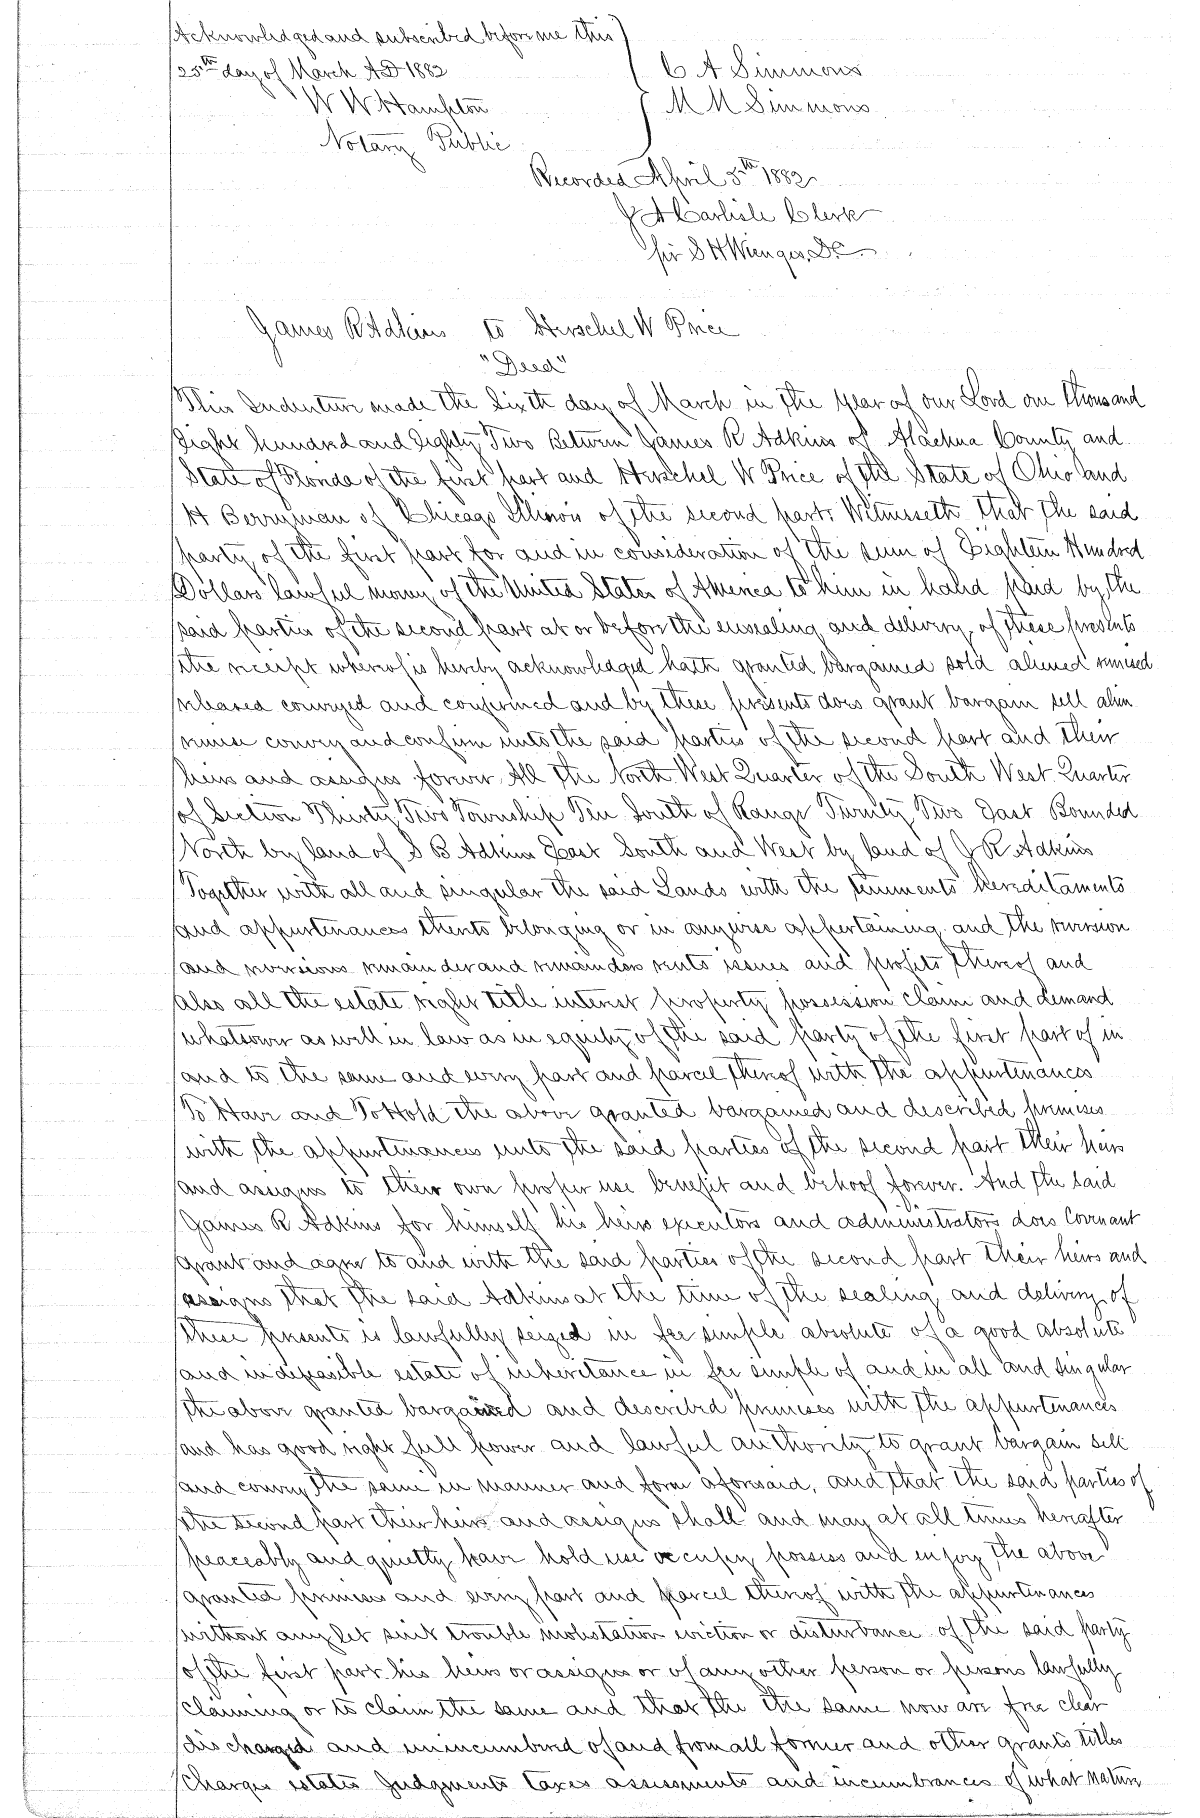 Acknowledged and subscribed before me this
25th day of March AD 1882
C A Simmons
W W Hampton
M M Simmons
Notary Public
Recorded April 5th 1882
J A Carlisle Clerk
pir S H Wienges, D.C.
James R Adkins to Herschel W Price
"Deed"
This Indenture made the Sixth day of March in the year of our Lord one thousand
Eight hundred and Eighty Two Between James R Adkins of Alachua County and
State of Florida of the first part and Herschel W Price of the State of Ohio and
H Berryman of Chicago Illinois of the second parts Witnesseth that the said
party of the first part for and in consideration of the sum of Eighteen Hundred
Dollars lawful money of the United States of America to him in hand paid by the
said parties of the second part at or before the ensealing and delivery of these presents
the receipt whereof is hereby acknowledged hath granted bargained sold aliened remised
released conveyed and confirmed and by these presents does grant bargain sell alien
remise convey and confirm unto the said parties of the second part and their
heirs and assigns forever All the North West Quarter of the South West Quarter
of Section Thirty Two Township Ten South of Range Twenty Two East Bounded
North by land of S B Adkins East South and West by land of J R Adkins
Together with all and singular the said Lands with the tenements hereditaments
and appurtenances thereto belonging or in anywise appertaining and the reversion
and reversions remainder and remainders rents issues and profits thereof and
also all the estate right title interest property possession claim and demand
whatsoever as well in law as in equity of the said party of the first part of in
and to the same and every part and parcel thereof with the appurtenances
To Have and To Hold the above granted bargained and described premises
with the appurtenances unto the said parties of the second part their heirs
and assigns to their own proper use benefit and behoof forever. And the said
James R Adkins for himself his heirs executors and administrators does Covenant
grant and agree to and with the said parties of the second part their heirs and
assigns that the said Adkins at the time of the sealing and delivery of
these presents is lawfully seized in fee simple absolute of a good absolute
and indefeasible estate of inheritance in fee simple of and in all and singular
the above granted bargained and described premises with the appurtenances
and has good right full power and lawful authority to grant bargain sell
and convey the same in manner and form aforesaid, and that the said parties of
the second part their heirs and assigns shall and may at all times hereafter
peaceably and quietly have hold use occupy possess and enjoy the above
granted premises and every part and parcel thereof with the appurtenances
without any let suit trouble molestation eviction or disturbance of the said party
of the first part his heirs or assigns or of any other person or persons lawfully
claiming or to claim the same and that the the same now are free clear
discharged and unincumbered of and from all former and other grants titles
charges estates Judgments taxes assessments and incumbrances of what nature